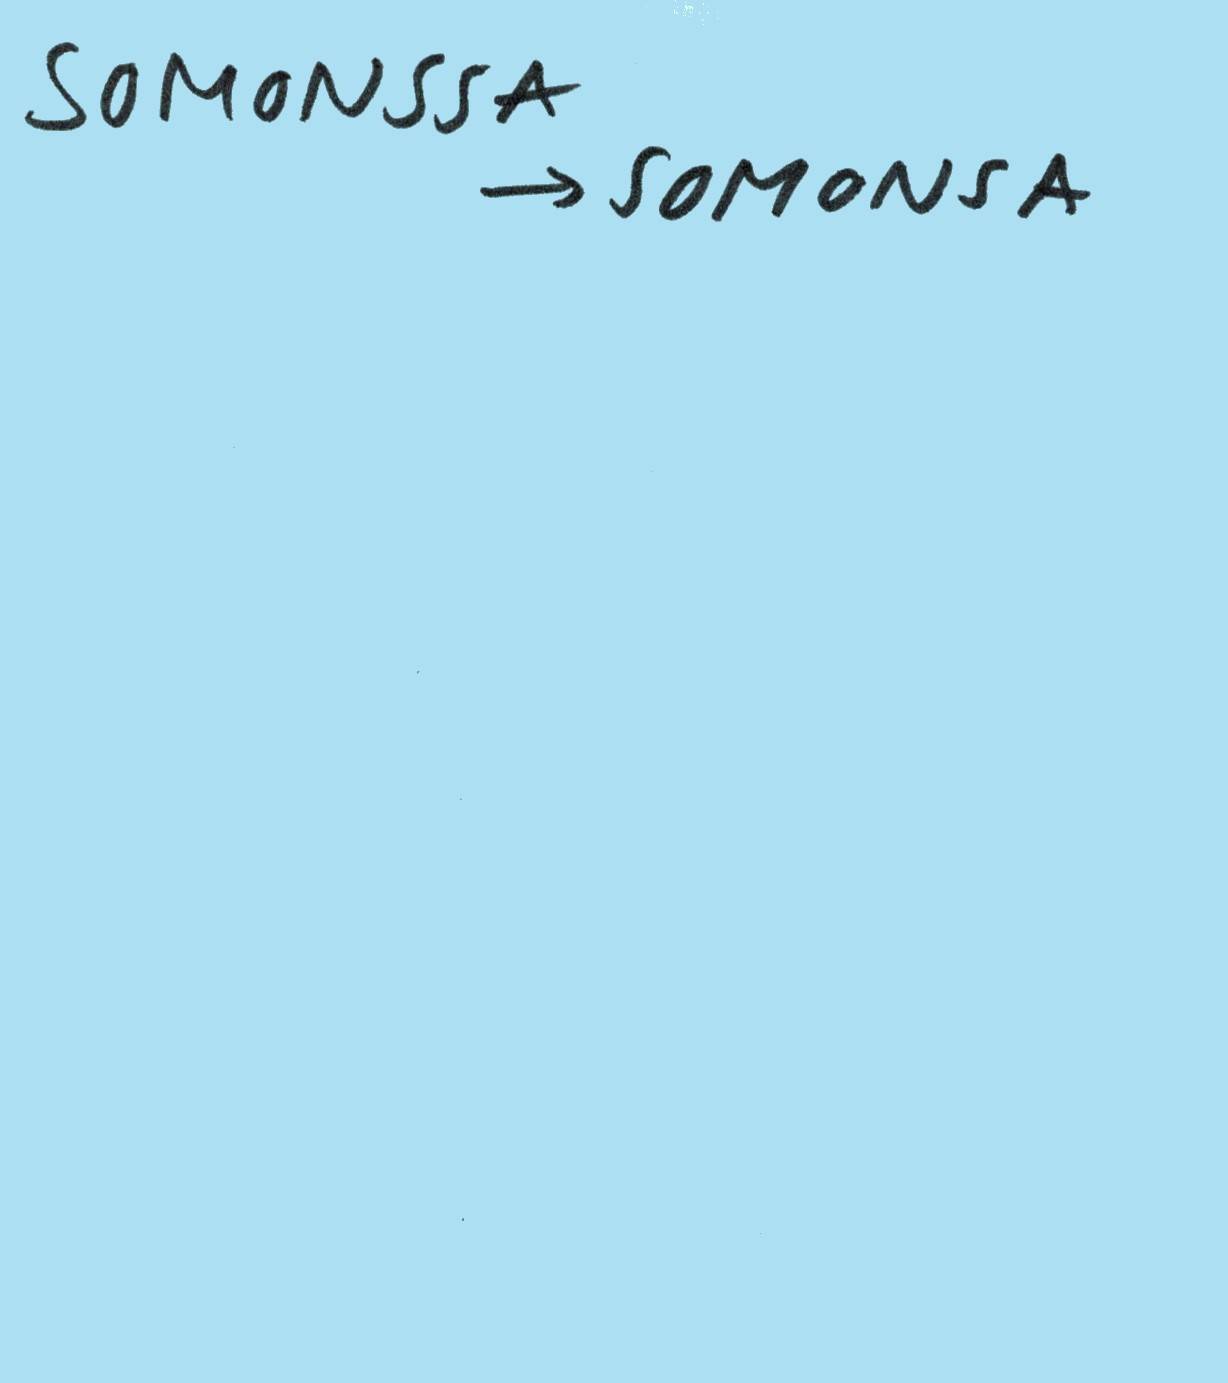 SOMONSSA
→ SOMONSA